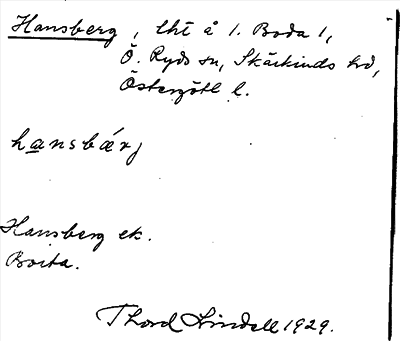 Hansberg, lht å 1. Boda 1,
Ö. Ryds sn, Skärkinds hd,
Östergötl l.
hansbærj
Hansberg ek.
Borta.
Thord Lindell 1929.